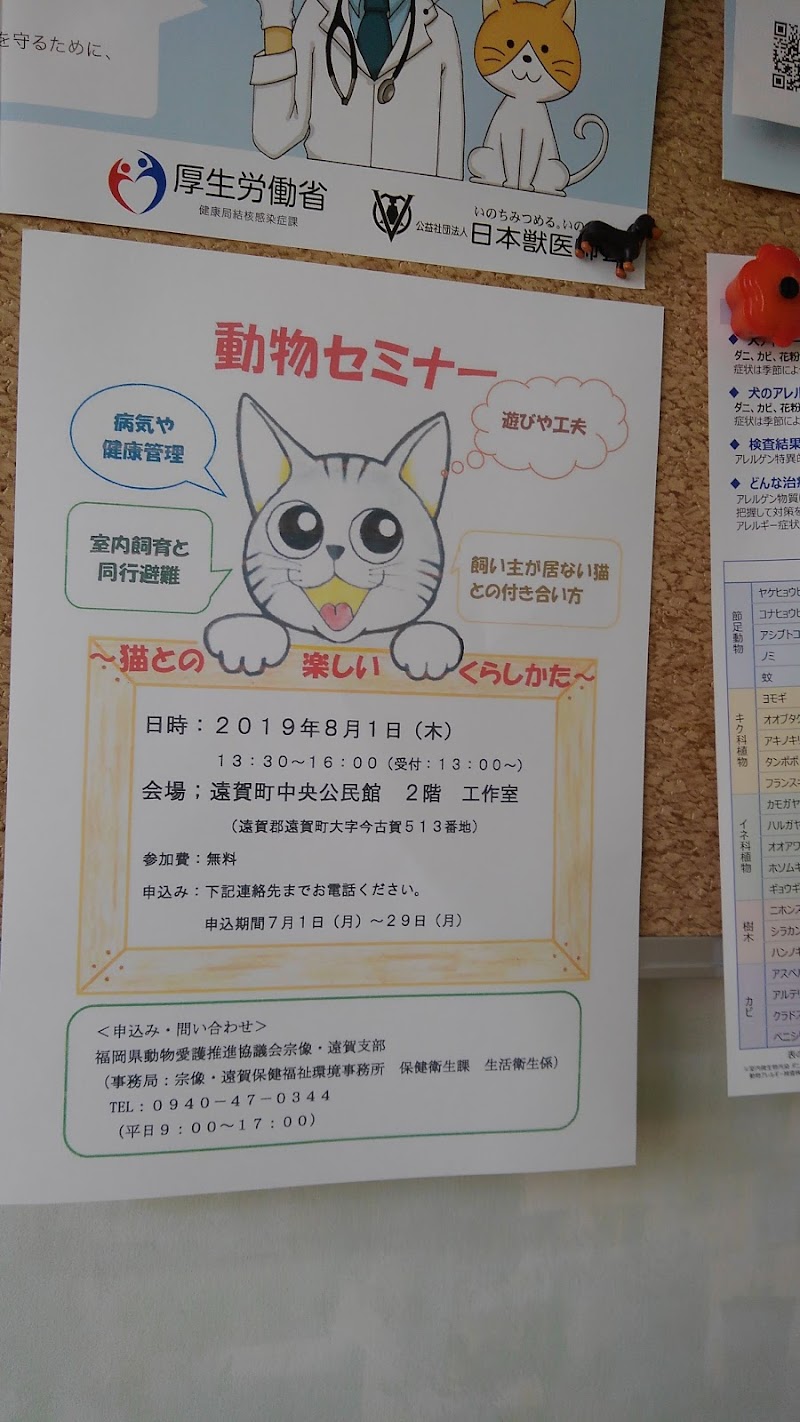 を守るために、
厚生労働省
健康局結核感染症課
いのちみつめる。いの
公益社団法人 日本獣医師
動物セミナー
病気や
健康管理
遊びや工夫
室内飼育と
同行避難
飼い主が居ない猫
との付き合い方
～猫との 楽しい くらしかた～
日時：２０１９年８月１日（木）
１３：３０～１６：００（受付：１３：００～）
会場；遠賀町中央公民館 ２階 工作室
（遠賀郡遠賀町大字今古賀５１３番地）
参加費：無料
申込み：下記連絡先までお電話ください。
申込期間７月１日（月）～２９日（月）
＜申込み・問い合わせ＞
福岡県動物愛護推進協議会宗像・遠賀支部
（事務局：宗像・遠賀保健福祉環境事務所 保健衛生課 生活衛生係）
TEL：０９４０－４７－０３４４
（平日９：００～１７：００）
ダニ、カビ、花粉
症状は季節によ
◆ 犬のアレル
ダニ、カビ、花粉
症状は季節によ
◆ 検査結果
アレルゲン特異的
◆ どんな治療
アレルゲン物質
把握して対策を
アレルギー症状
節足動物
ヤケヒョウヒ
コナヒョウヒ
アシブトコ
ノミ
蚊
キク科植物
ヨモギ
オオブタク
アキノキリ
タンポポ
フランスギ
イネ科植物
カモガヤ
ハルガヤ
オオアワ
ホソムギ
ギョウギ
樹木
ニホンス
シラカン
ハンノキ
カビ
アスペル
アルテリ
クラドス
ペニシ